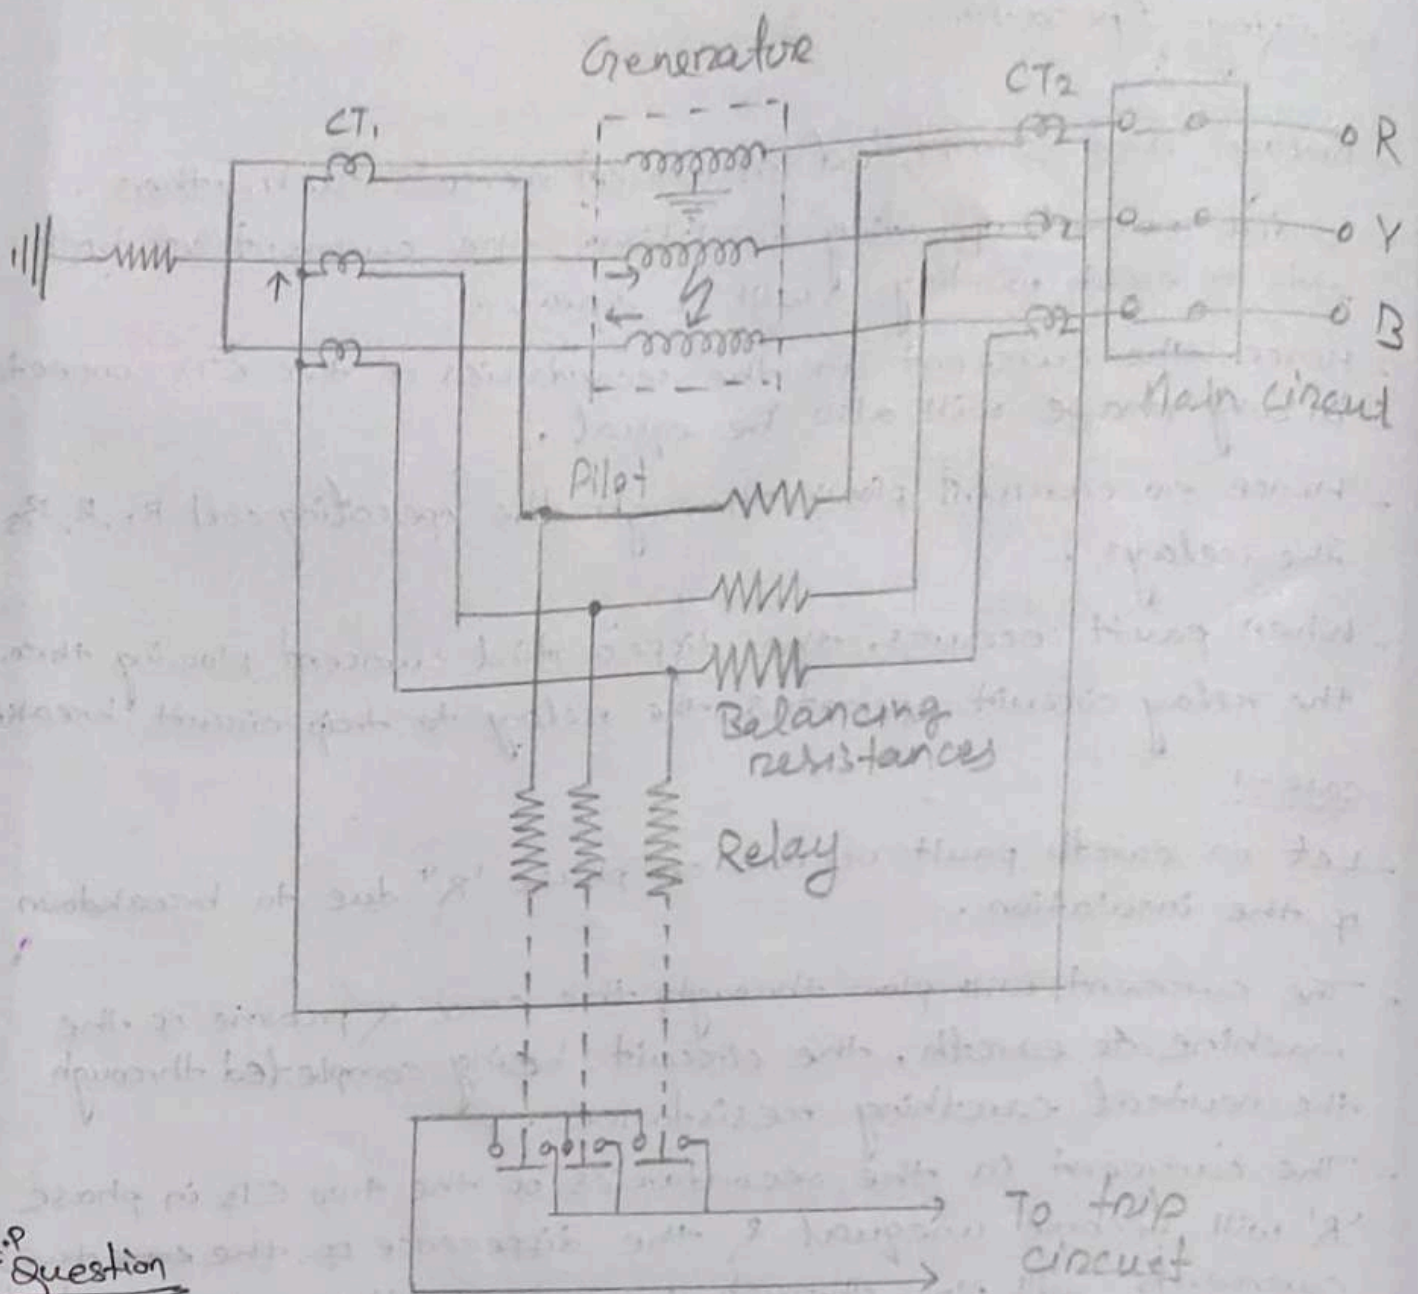 Generator
CT1
CT2
R
Y
B
Main circuit
Pilot
Balancing
resistances
Relay
To trip
circuit
Question